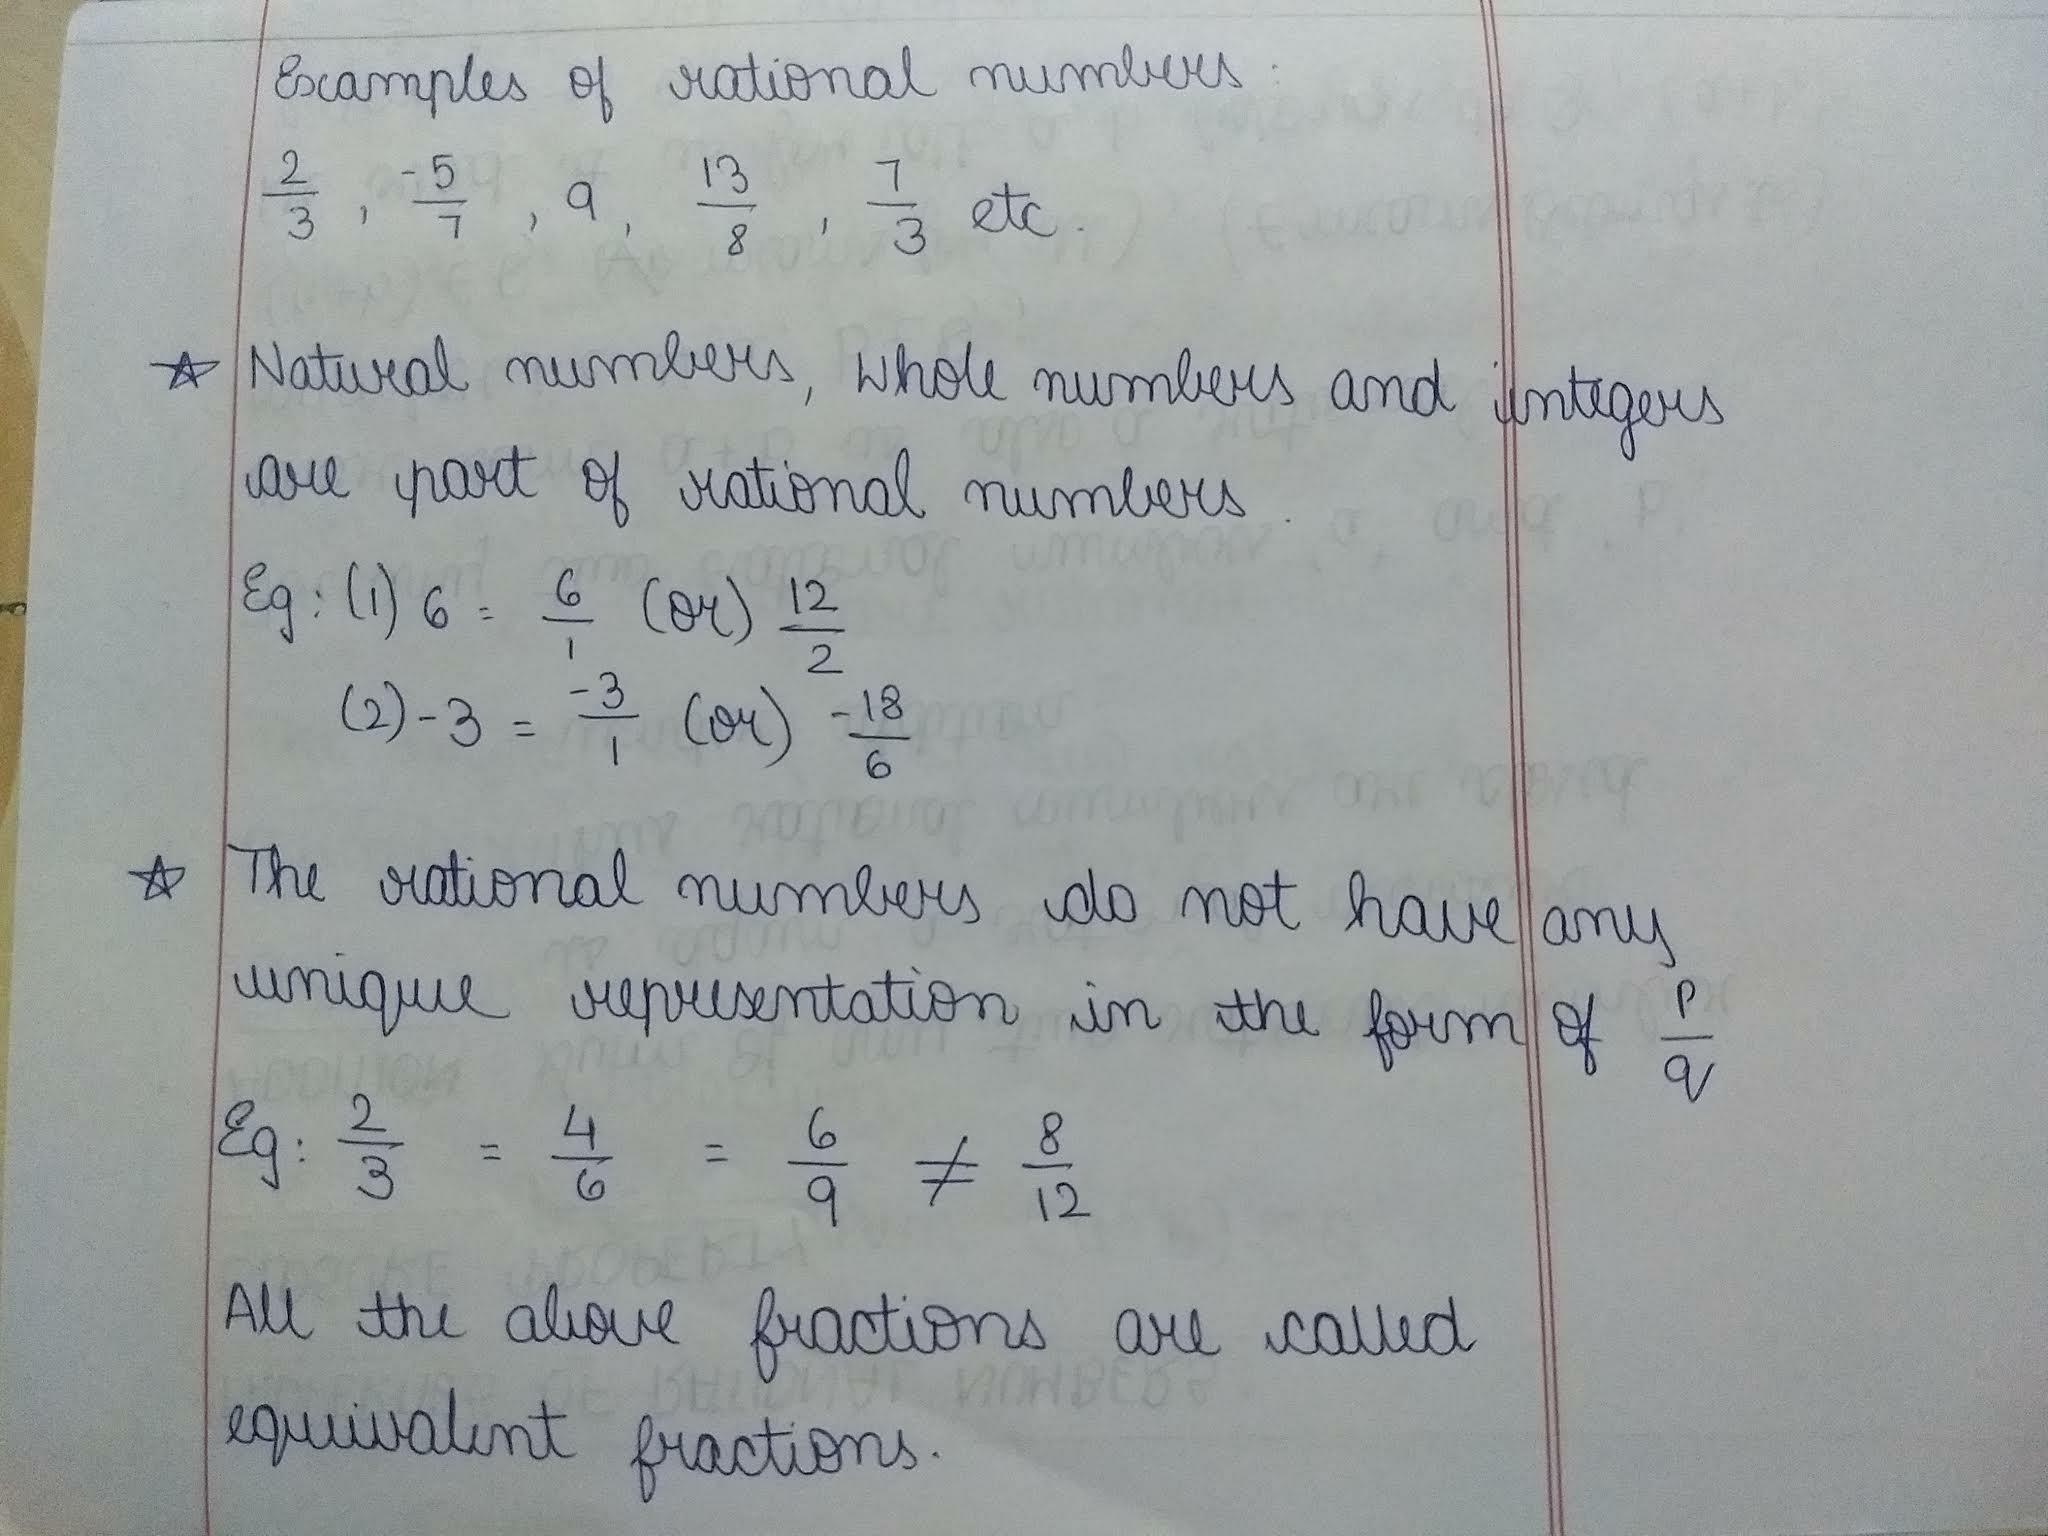 Examples of rational numbers:
2/3, -5/7, 9, 13/8, 7/3 etc.
☆ Natural numbers, Whole numbers and integers
are part of rational numbers.
Eg: (1) 6 = 6/1 (or) 12/2
(2) -3 = -3/1 (or) -18/6
☆ The rational numbers do not have any
unique representation in the form of p/q
Eg: 2/3 = 4/6 = 6/9 ≠ 8/12
All the above fractions are called
equivalent fractions.